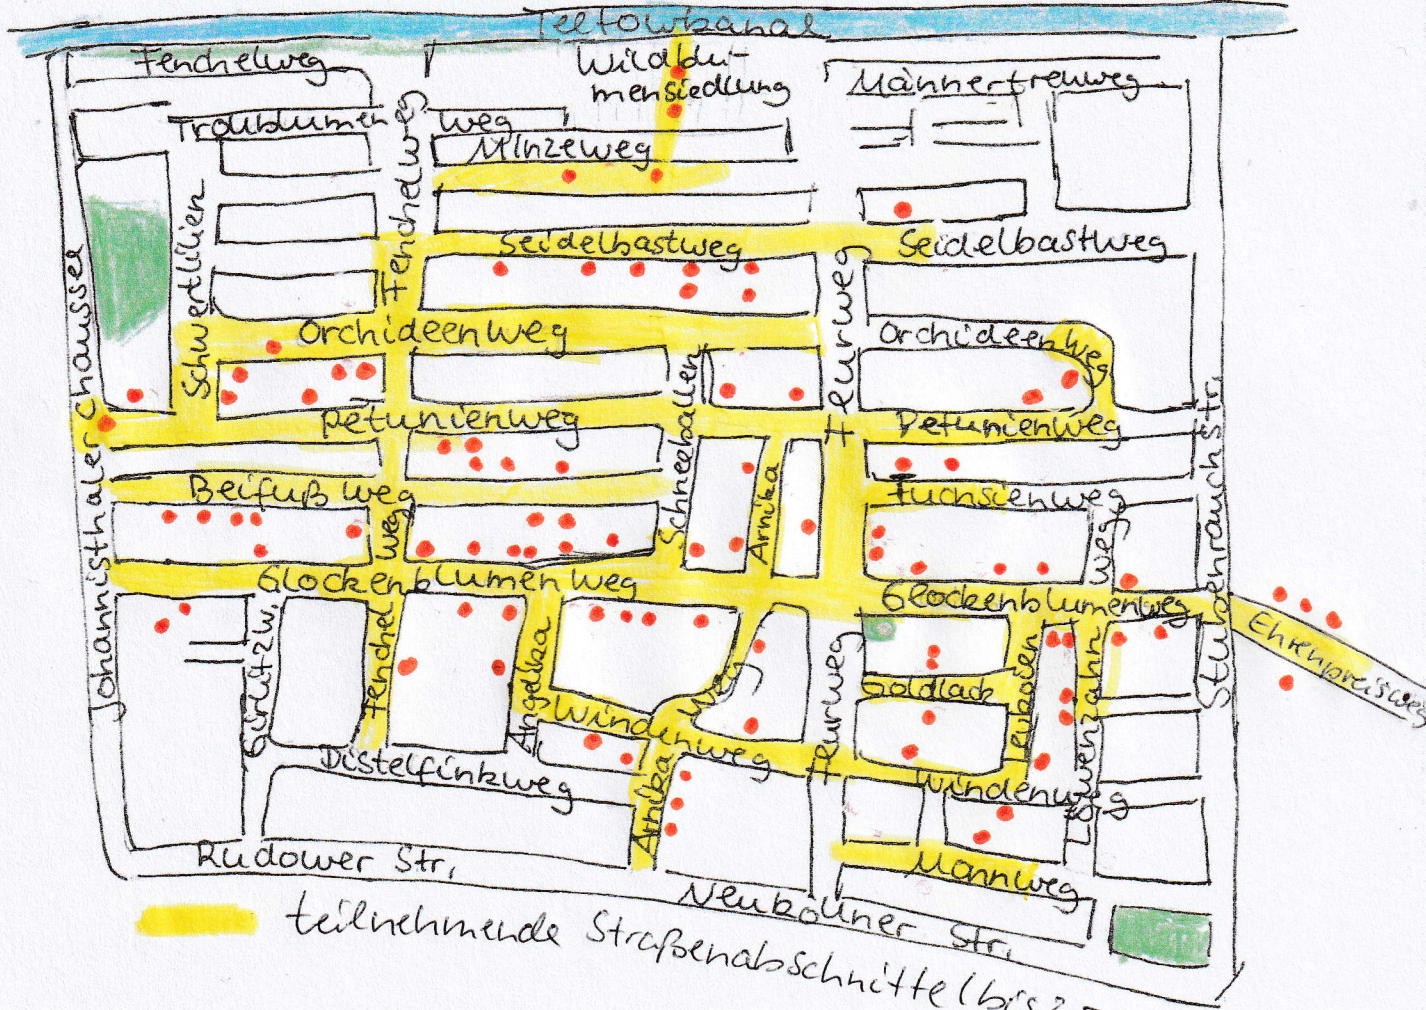 Teltowkanal
Fenchelweg
Wildblu-
mensiedlung
Männertreuweg
Trollblumen weg
Minzeweg
Fenchelweg
Schwertlilien
Seidelbastweg
Seidelbastweg
Johannisthaler Chaussee
Heurweg
Orchideenweg
Orchideenweg
Schneeballen
Petunienweg
Petunienweg
Arnika
Beifuß weg
Fuchsienweg
weg
Stubenrauchstr.
Glockenblumenweg
Glockenblumenweg
Ehrenpreisweg
Fenchel weg
Angelika
Weg
Heurweg
Goldlack
Leukojen
Löwenzahn
weg
Windenweg
Windenweg
Distelfinkweg
Arnika
Rudower Str.
Mannweg
Neuköllner Str.
teilnehmende Straßenabschnitte (bis